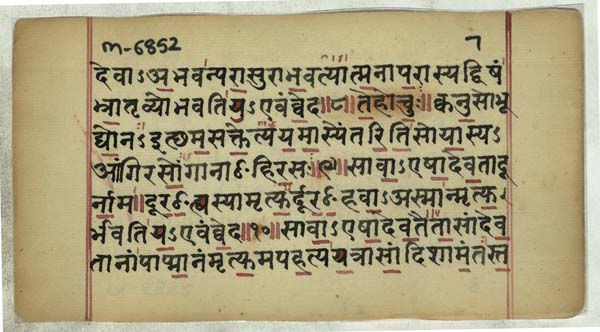 m-6852 7
देवाऽअभवन्परासुराभवत्यात्मनापरास्यद्विषं
भ्रातृव्योभवतियऽएवंव्वेद॥८॥तेहोचुः॥क्वनुसोभू
द्योनऽइत्थमसक्तेत्ययमास्येंतरितिसोयास्यऽ
आंगिरसोंगानाᳬहिरसः॥९॥सावाऽएषादेवतादू
र्नाम॥दूरᳬह्यस्यामृत्युर्दूरᳬहवाऽअस्मान्मृत्यु
र्भवतियऽएवंव्वेद॥१०॥सावाऽएषादेवतैतासांदेव
तानांपाप्मानंमृत्युमपहत्ययत्रासांदिशामंतस्त